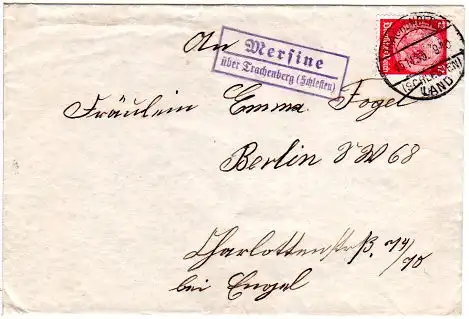 An
Mersine
über Trachenberg (Schlesien)
Fräulein Emma Fogel
Berlin SW 68
Charlottenstrß. 74/70
bei Engel
(SCHLESIEN)
LAND